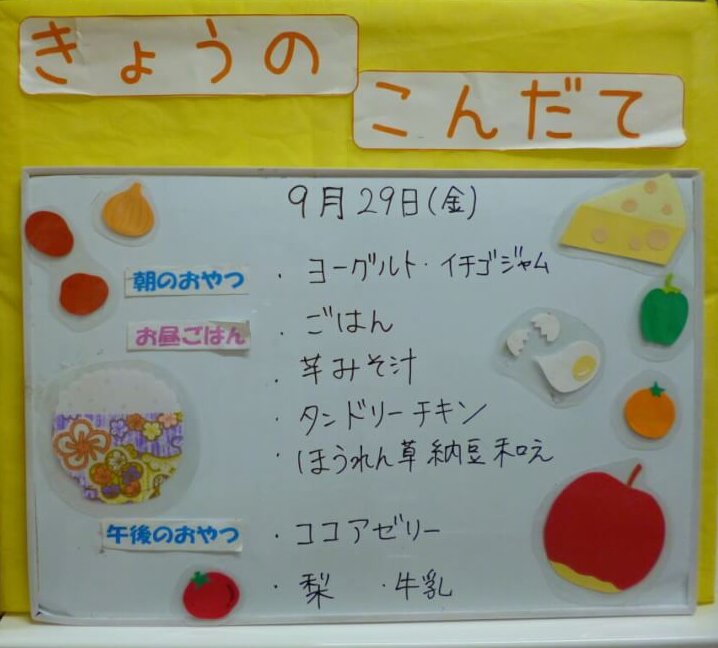 きょうの
こんだて
9月29日(金)
朝のおやつ ・ヨーグルト・イチゴジャム
お昼ごはん ・ごはん
・芋みそ汁
・タンドリーチキン
・ほうれん草納豆和え
午後のおやつ ・ココアゼリー
・梨 ・牛乳